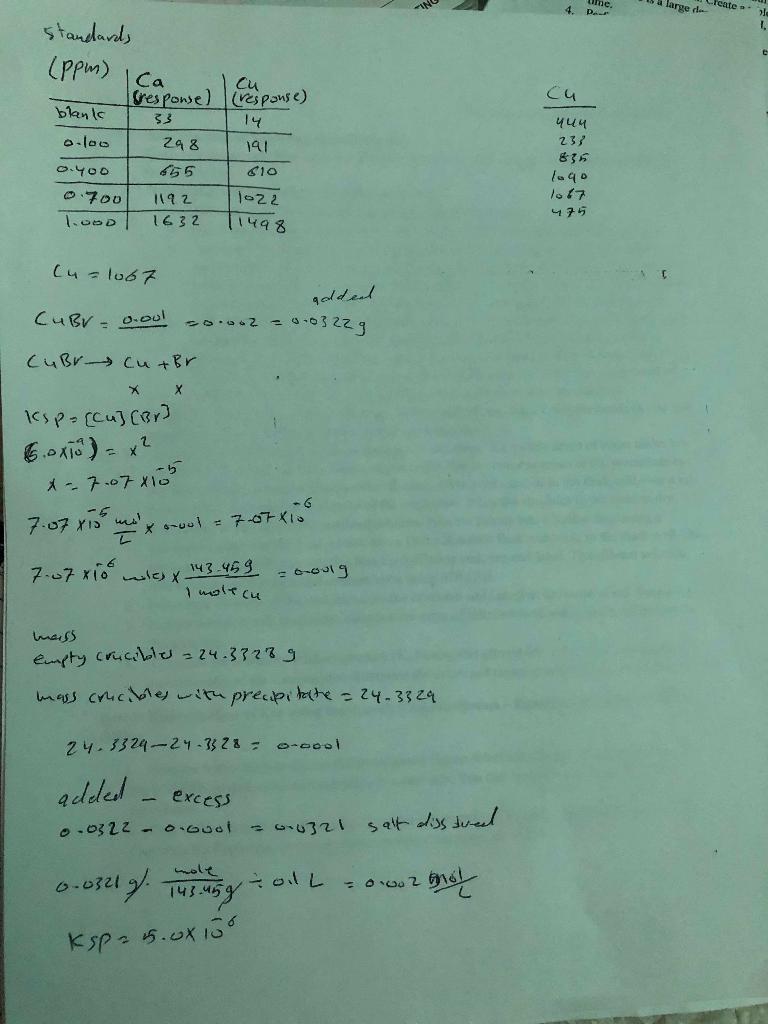 TING
time.
is a large
Create a
4.
Standards
(ppm)
Ca (response)
Cu (response)
blank 33 14
0.100 298 191
0.400 655 610
0.700 1192 1022
1.000 1632 1498
Cu
444
233
835
1090
1067
475
Cu = 1067
added
CuBr = 0.001 = 0.002 = 0.0322g
CuBr → Cu + Br
x x
Ksp = [Cu][Br]
(5.0x10⁻⁹) = x²
x = 7.07 x10⁻⁵
7.07 x10⁻⁵ mol/L x 0.001 = 7.07 x10⁻⁶
7.07 x10⁻⁶ moles x 143.45g / 1 mole Cu = 0.001g
mass
empty crucibles = 24.3328 g
mass crucibles with precipitate = 24.3329
24.3329 - 24.3328 = 0.0001
added - excess
0.0322 - 0.0001 = 0.0321 salt dissolved
0.0321 g. mole / 143.45g ÷ 0.1 L = 0.002 mol/L
Ksp = 5.0x10⁻⁶